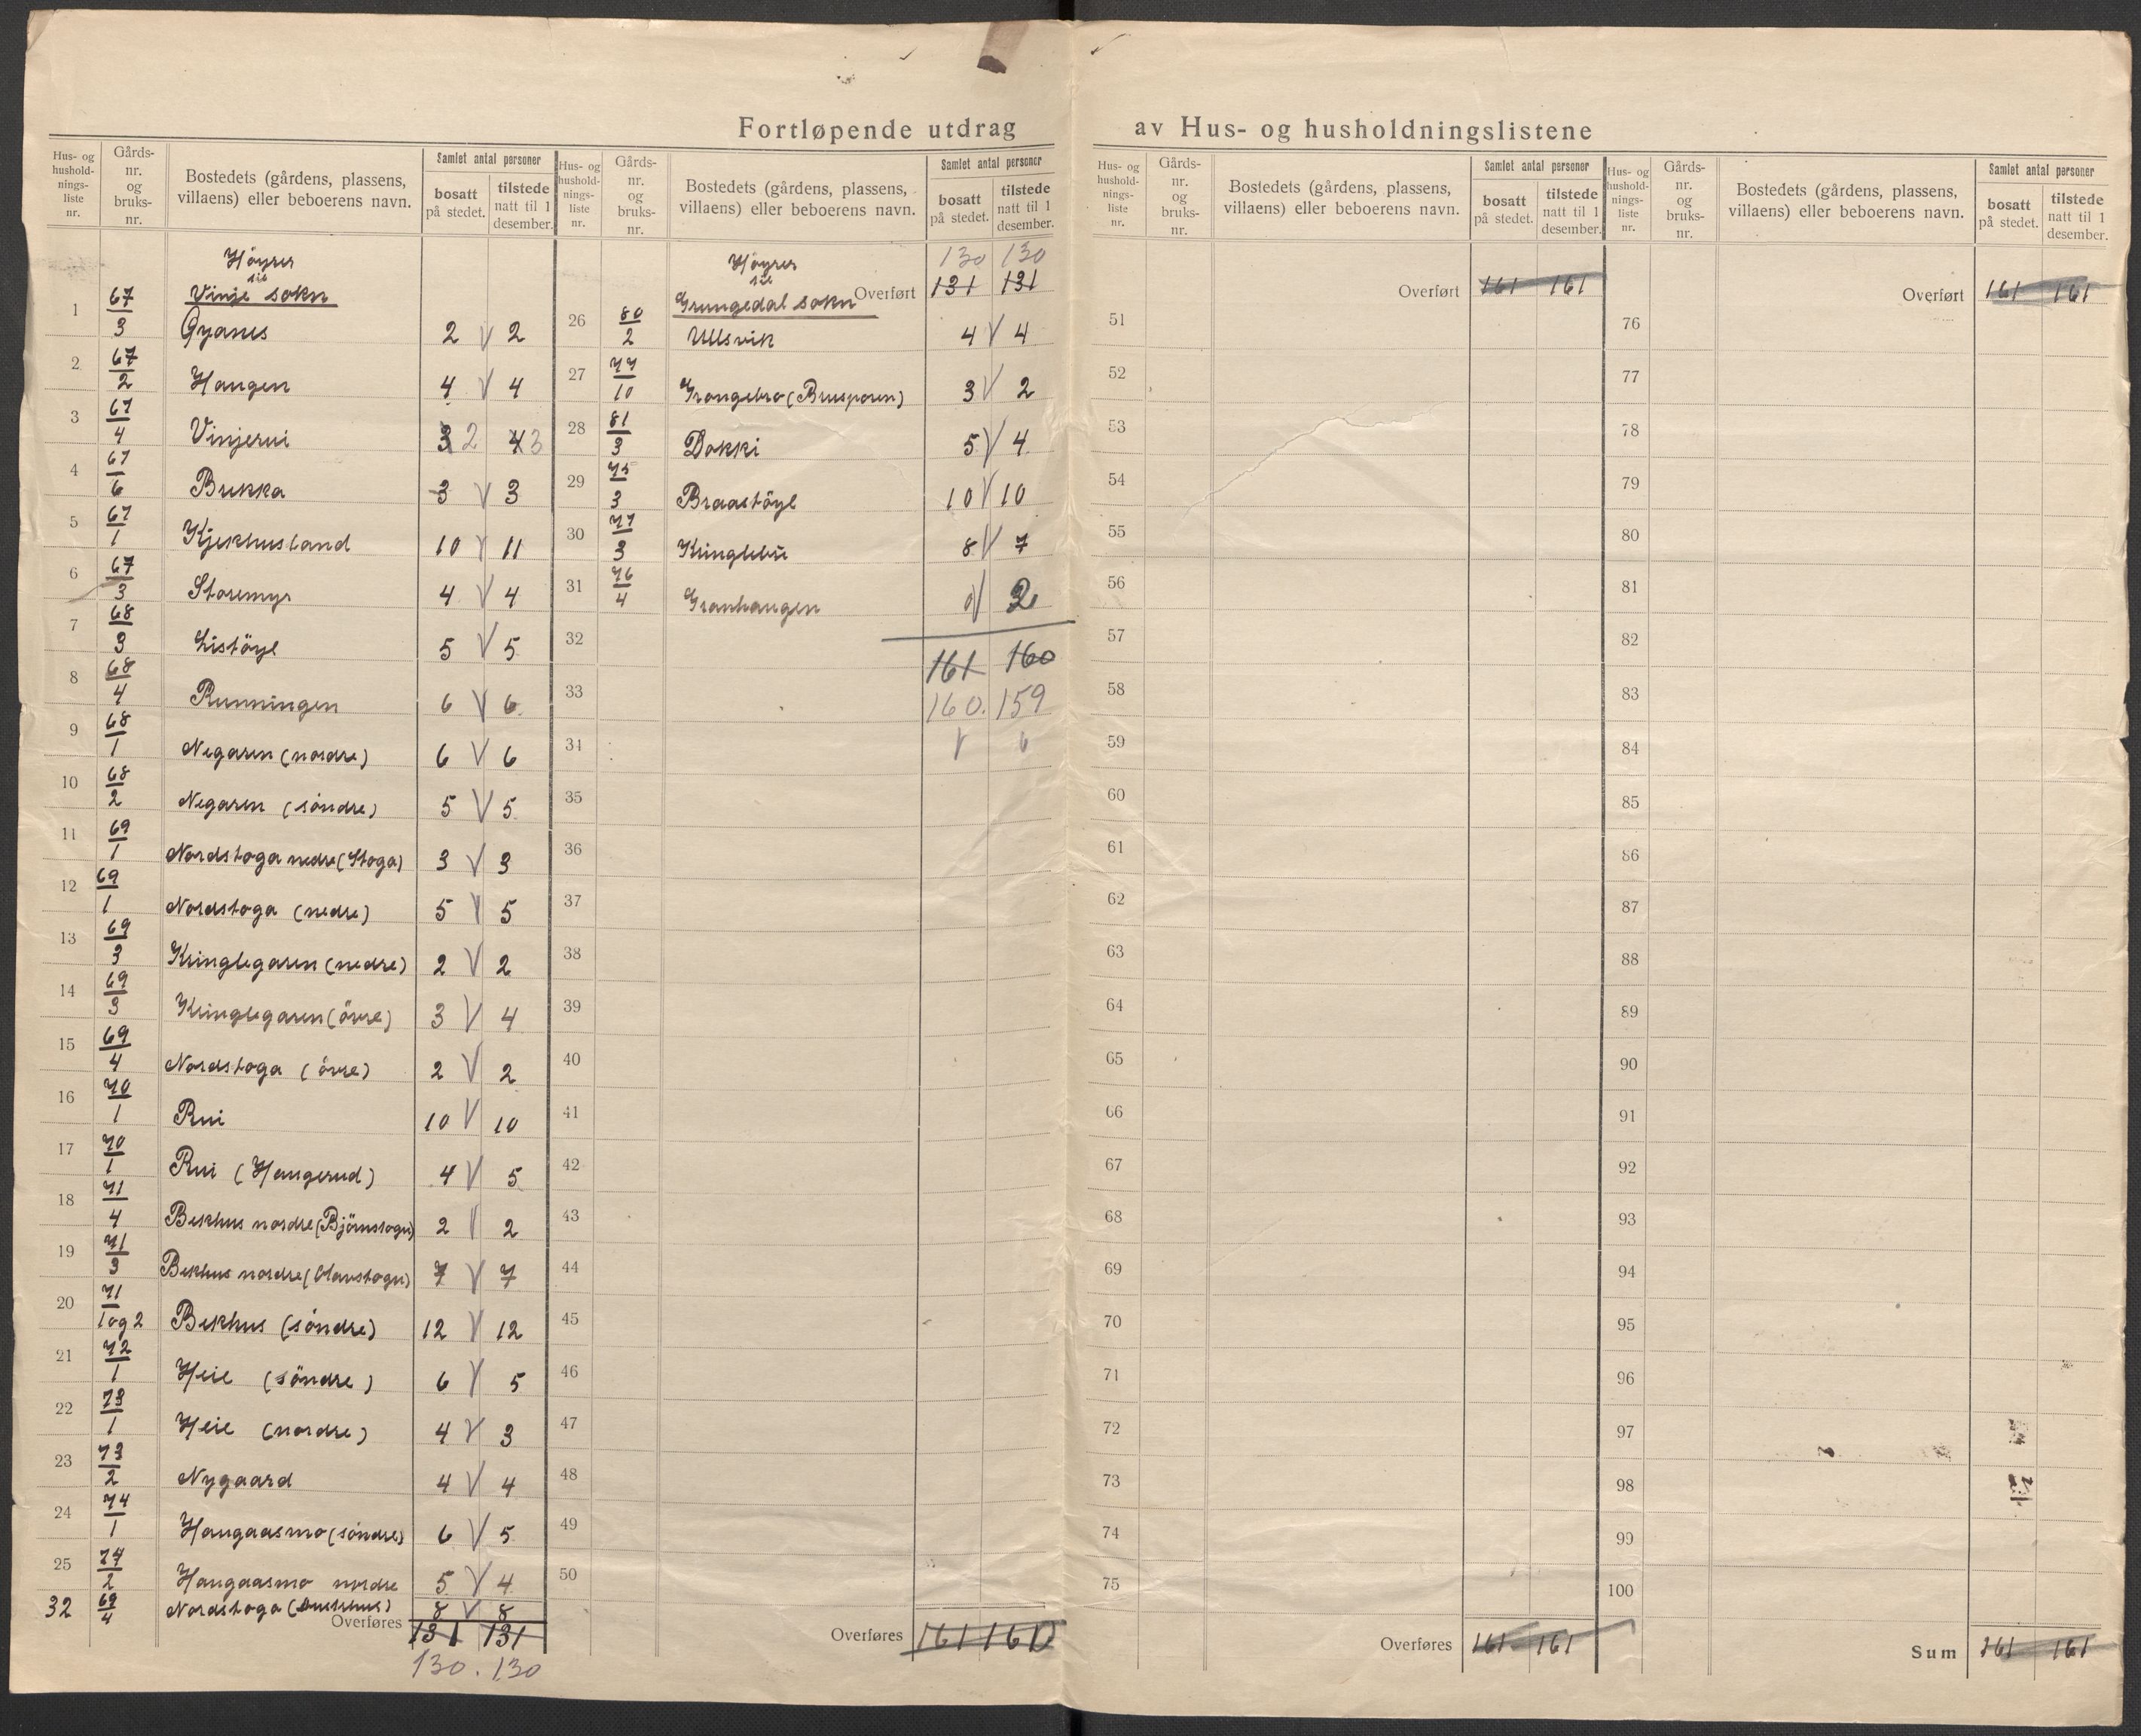 Fortløpende utdrag av Hus- og husholdningslistene
Hus- og husholdningsliste nr. | Gårds-nr. og bruks-nr. | Bostedets (gårdens, plassens, villaens) eller beboerens navn. | Samlet antal personer | bosatt på stedet. | tilstede natt til 1 desember.
Höyrer
til
Vinje sokn
1 67/3 2 V 2
2 67/2 Haugen 4 V 4
3 67/4 Vinjerui 3 2 4 3
4 67/6 Bukka 3 V 3
5 67/1 Kjekhusland 10 V 11
6 67/3 Storemyr 4 V 4
7 68/3 Listöyl 5 V 5
8 68/4 Runningen 6 V 6
9 68/1 Negaren (nordre) 6 V 6
10 68/2 Negaren (söndre) 5 V 5
11 69/1 Nordstoga nedre (Stoga) 3 V 3
12 69/1 Nordstoga (nedre) 5 V 5
13 69/3 Kringlegaren (nedre) 2 V 2
14 69/3 Kringlegaren (övre) 3 V 4
15 69/4 Nordstoga (övre) 2 V 2
16 70/1 Rui 10 V 10
17 70/1 Rui (Haugerud) 4 V 5
18 71/4 Bekhus nordre (Björnstogu) 2 V 2
19 71/3 Bekhus nordre (Olavstogu) 7 V 7
20 71/1 og 2 Bekhus (söndre) 12 V 12
21 72/1 Heie (söndre) 6 V 5
22 73/1 Heie (nordre) 4 V 3
23 73/2 Nygaard 4 V 4
24 74/1 Haugaasmo (söndre) 6 V 5
25 74/2 Haugaasmo nordre 5 V 4
32 69/4 Nordstoga 8 V 8
Overføres 131 131
130. 130
Hus- og husholdningsliste nr. | Gårds-nr. og bruks-nr. | Bostedets (gårdens, plassens, villaens) eller beboerens navn. | Samlet antal personer | bosatt på stedet. | tilstede natt til 1 desember.
Höyrer 130 130
til
Grungedal sokn Overført 131 131
26 80/2 Ullsvik 4 V 4
27 77/10 Grongebro (Brusporen) 3 V 2
28 81/3 Dokki 5 V 4
29 75/3 Braastöyl 10 V 10
30 77/3 Kringlebu 8 V 7
31 76/4 Granhaugen 0 V 2
32 161 160
33 160. 159
34
35
36
37
38
39
40
41
42
43
44
45
46
47
48
49
50
Overføres 161 160
Hus- og husholdningsliste nr. | Gårds-nr. og bruks-nr. | Bostedets (gårdens, plassens, villaens) eller beboerens navn. | Samlet antal personer | bosatt på stedet. | tilstede natt til 1 desember.
Overført 161 161
51
52
53
54
55
56
57
58
59
60
61
62
63
64
65
66
67
68
69
70
71
72
73
74
75
Overføres 161 161
Hus- og husholdningsliste nr. | Gårds-nr. og bruks-nr. | Bostedets (gårdens, plassens, villaens) eller beboerens navn. | Samlet antal personer | bosatt på stedet. | tilstede natt til 1 desember.
Overført 161 161
76
77
78
79
80
81
82
83
84
85
86
87
88
89
90
91
92
93
94
95
96
97
98
99
100
Sum 161 161